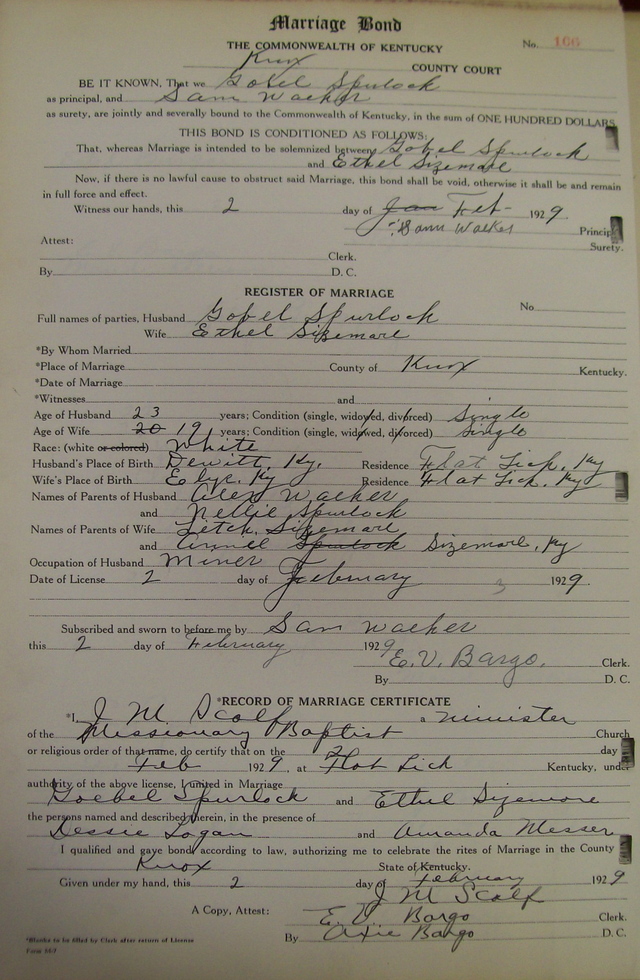 Marriage Bond
THE COMMONWEALTH OF KENTUCKY
No. 166
Knox COUNTY COURT
BE IT KNOWN, That we Gobel Spurlock
as principal, and Sam Walker
as surety, are jointly and severally bound to the Commonwealth of Kentucky, in the sum of ONE HUNDRED DOLLARS
THIS BOND IS CONDITIONED AS FOLLOWS:
That, whereas Marriage is intended to be solemnized between Gobel Spurlock
and Ethel Sizemore
Now, if there is no lawful cause to obstruct said Marriage, this bond shall be void, otherwise it shall be and remain
in full force and effect.
Witness our hands, this 2 day of Jan Feb- 1929.
Sam Walker Princip
Surety.
Attest:
Clerk.
By D. C.
REGISTER OF MARRIAGE
Full names of parties, Husband Gobel Spurlock No
Wife Ethel Sizemore
*By Whom Married
*Place of Marriage County of Knox Kentucky.
*Date of Marriage
*Witnesses and
Age of Husband 23 years; Condition (single, widowed, divorced) Single
Age of Wife 20 19 years; Condition (single, widowed, divorced) Single
Race: (white or colored) White
Husband's Place of Birth Dewitt, Ky. Residence Flat Lick, Ky
Wife's Place of Birth Ky Residence Flat Lick, Ky
Names of Parents of Husband Alex Walker
and Nellie Spurlock
Names of Parents of Wife Letch Sizemore
and Spurlock Sizemore, Ky
Occupation of Husband Miner
Date of License 2 day of February 3 1929.
Subscribed and sworn to before me by Sam Walker
this 2 day of February 1929
E. V. Bargo, Clerk.
By D. C.
*RECORD OF MARRIAGE CERTIFICATE
*I, J M Scalf a minister
of the Missionary Baptist Church
or religious order of that name, do certify that on the 2 day
Feb 1929, at Flat Lick Kentucky, under
authority of the above license, I united in Marriage
Goebel Spurlock and Ethel Sizemore
the persons named and described wherein, in the presence of
Dessie Logan and Amanda Messer
I qualified and gave bond according to law, authorizing me to celebrate the rites of Marriage in the County
Knox State of Kentucky.
Given under my hand, this 2 day of February 1929
J M Scalf
A Copy, Attest: E. V. Bargo Clerk.
By Bargo D. C.
*Blanks to be filled by Clerk after return of License